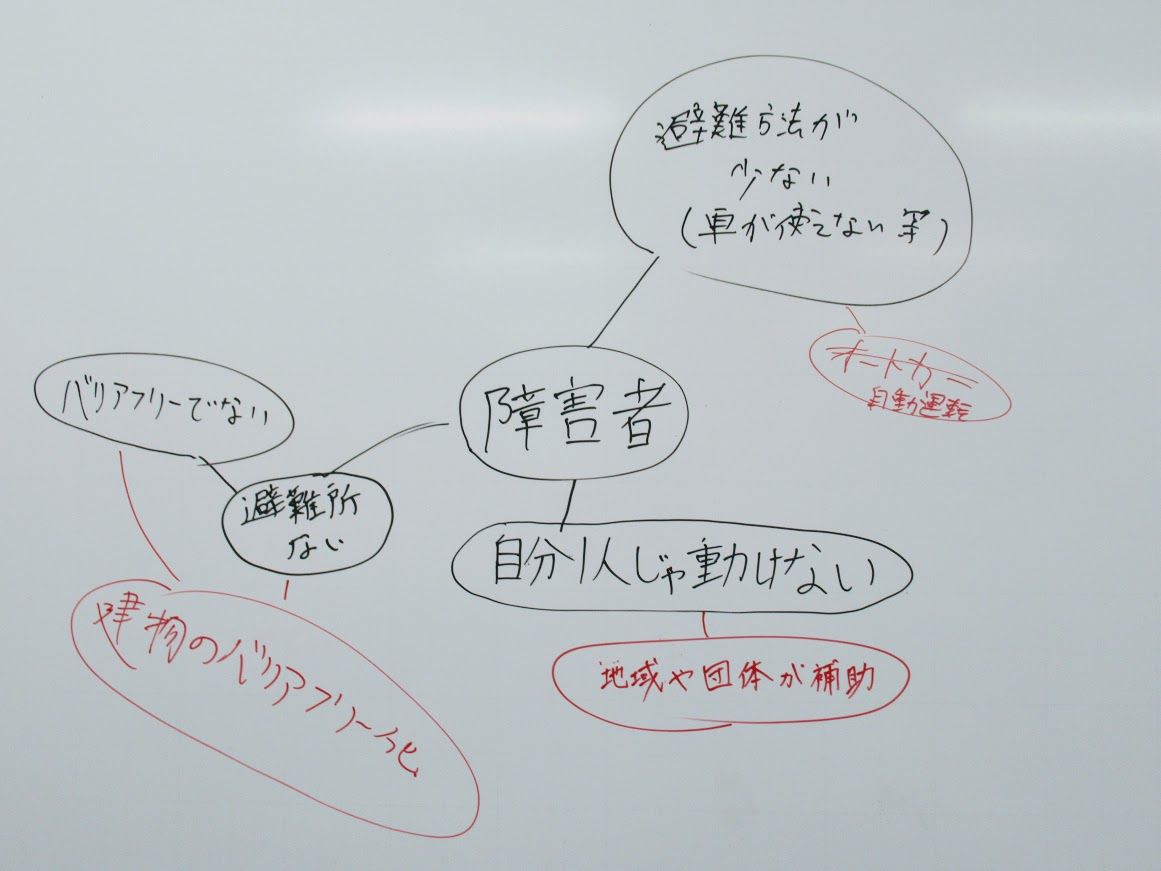 避難方法が
少ない
(車が使えない等)
オートカー
自動運転
バリアフリーでない
障害者
避難所
ない
自分1人じゃ動けない
建物のバリアフリー化
地域や団体が補助